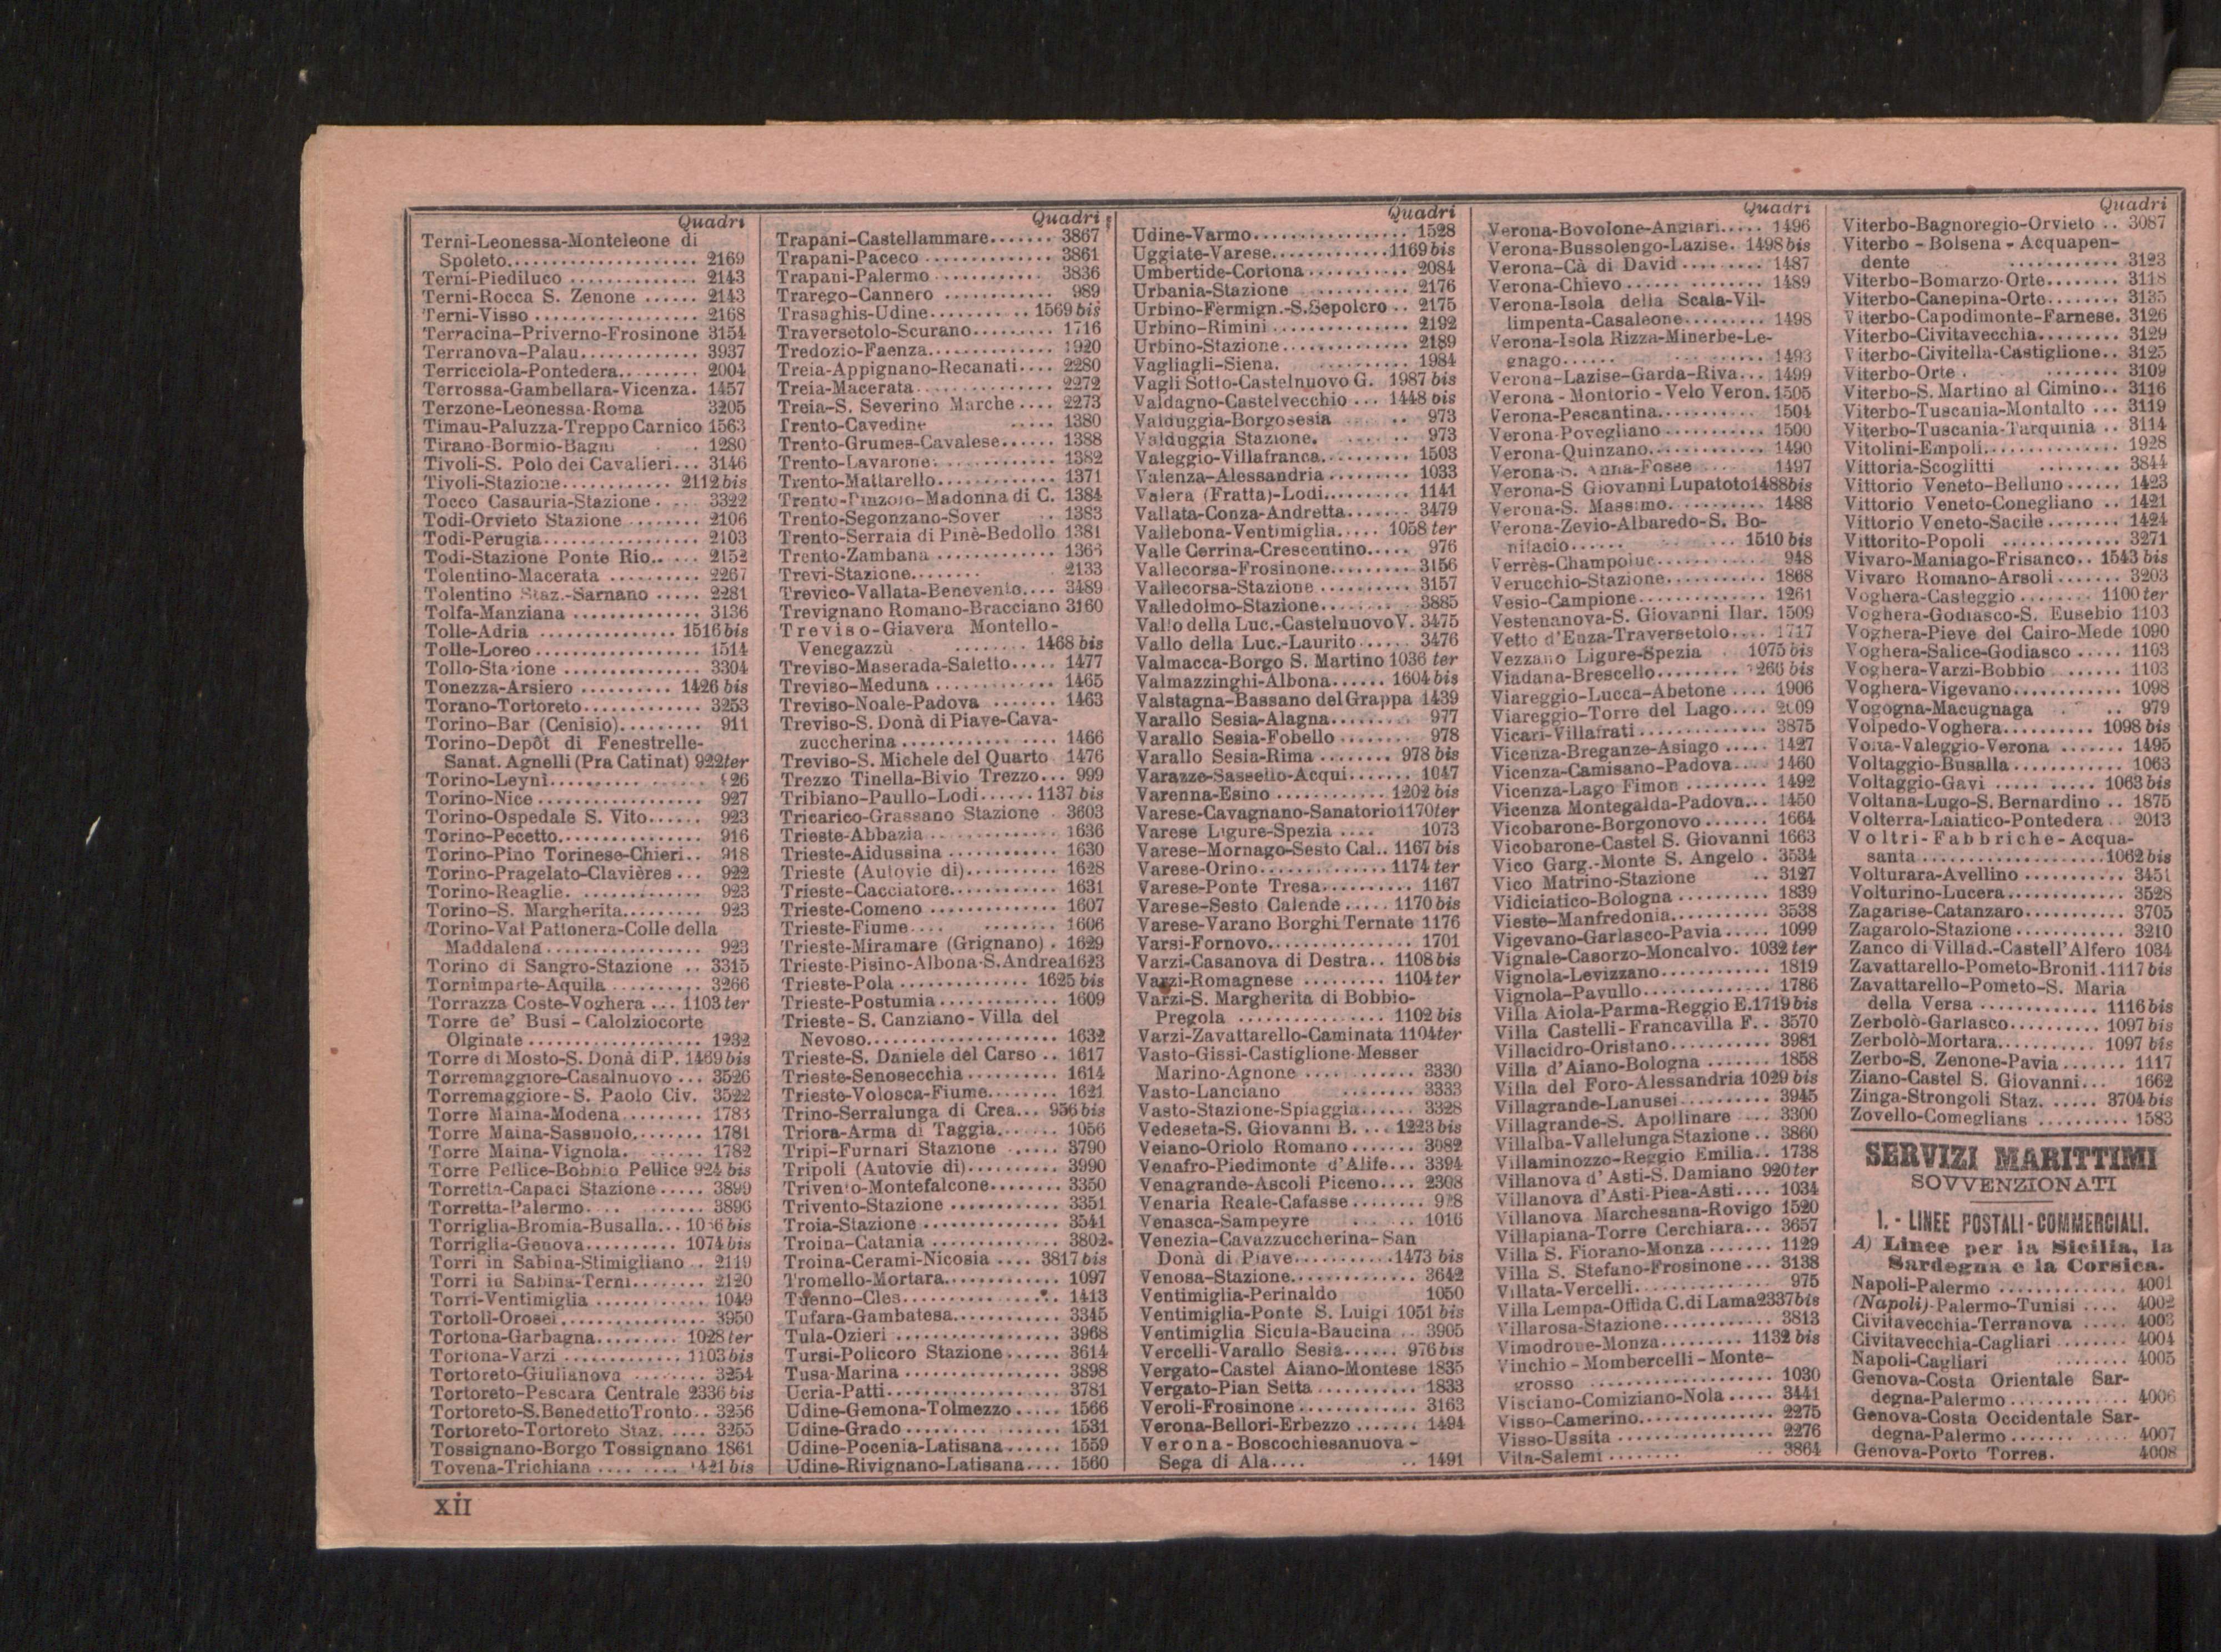 Quadri
Terni-Leonessa-Monteleone di
Spoleto.................... 2169
Terni-Piediluco .............. 2143
Terni-Rocca S. Zenone ...... 2143
Terni-Visso ................. 2168
Terracina-Priverno-Frosinone 3154
Terranova-Palau............. 3937
Terricciola-Pontedera......... 2004
Terrossa-Gambellara-Vicenza. 1457
Terzone-Leonessa-Roma 3205
Timau-Paluzza-Treppo Carnico 1563
Tirano-Bormio-Bagni . . 1280
Tivoli-S. Polo dei Cavalieri... 3146
Tivoli-Stazione............ 2112 bis
Tocco Casauria-Stazione .... 3322
Todi-Orvieto Stazione ........ 2106
Todi-Perugia................. 2103
Todi-Stazione Ponte Rio...... 2152
Tolentino-Macerata .......... 2267
Tolentino Staz.-Sarnano ..... 2281
Tolfa-Manziana ............. 3136
Tolle-Adria ............... 1516 bis
Tolle-Loreo .................. 1514
Tollo-Stazione ............... 3304
Tonezza-Arsiero .......... 1426 bis
Torano-Tortoreto............. 3253
Torino-Bar (Cenisio)......... 911
Torino-Depôt di Fenestrelle-
Sanat. Agnelli (Pra Catinat) 922ter
Torino-Leynì................ 26
Torino-Nice .................. 927
Torino-Ospedale S. Vito...... 923
Torino-Pecetto............... 916
Torino-Pino Torinese-Chieri.. 918
Torino-Pragelato-Clavières ... 922
Torino-Reaglie. ............. 923
Torino-S. Margherita......... 923
Torino-Val Pattonera-Colle della
Maddalena ................. 923
Torino di Sangro-Stazione .. 3315
Tornimparte-Aquila .......... 3266
Torrazza Coste-Voghera ... 1103 ter
Torre de' Busi - Calolziocorte
Olginate ................... 1232
Torre di Mosto-S. Donà di P. 1469 bis
Torremaggiore-Casalnuovo ... 3526
Torremaggiore-S. Paolo Civ. 3522
Torre Maina-Modena ......... 1783
Torre Maina-Sassuolo........ 1781
Torre Maina-Vignola. ....... 1782
Torre Pellice-Bobbio Pellice 924 bis
Torretta-Capaci Stazione..... 3899
Torretta-Palermo.... ....... 3896
Torriglia-Bromia-Busalla... bis
Torriglia-Genova.......... 1074 bis
Torri in Sabina-Stimigliano .. 2119
Torri in Sabina-Terni........ 2120
Torri-Ventimiglia ............ 1049
Tortolì-Orosei............... 3950
Tortona-Garbagna......... 1028 ter
Tortona-Varzi ............. 1103 bis
Tortoreto-Giulianova ........ 3254
Tortoreto-Pescara Centrale 2336 bis
Tortoreto-S. Benedetto Tronto.. 3256
Tortoreto-Tortoreto Staz. .... 3255
Tossignano-Borgo Tossignano 1861
Tovena-Trichiana ......... 1421 bis
XII
Quadri
Trapani-Castellammare....... 3867
Trapani-Paceco .............. 3861
Trapani-Palermo ............ 3836
Trarego-Cannero ............ 989
Trasaghis-Udine.......... 1569 bis
Traversetolo-Scurano......... 1716
Tredozio-Faenza............. 1920
Treia-Appignano-Recanati.... 2280
Treia-Macerata............... 2272
Treia-S. Severino Marche .... 2273
Trento-Cavedine ..... 1380
Trento-Grumes-Cavalese...... 1388
Trento-Lavarone............. 1382
Trento-Mattarello............. 1371
Trento-Pinzolo-Madonna di C. 1384
Trento-Segonzano-Sover .. 1383
Trento-Serraia di Pinè-Bedollo 1381
Trento-Zambana ............. 1366
Trevi-Stazione........ 2133
Trevico-Vallata-Benevento.... 3489
Trevignano Romano-Bracciano 3160
Treviso-Giavera Montello-
Venegazzù ........ 1468 bis
Treviso-Maserada-Saletto..... 1477
Treviso-Meduna ............. 1465
Treviso-Noale-Padova ....... 1463
Treviso-S. Donà di Piave-Cava-
zuccherina ................. 1466
Treviso-S. Michele del Quarto 1476
Trezzo Tinella-Bivio Trezzo... 999
Tribiano-Paullo-Lodi...... 1137 bis
Tricarico-Grassano Stazione . 3603
Trieste-Abbazia .............. 1636
Trieste-Aidussina ............ 1630
Trieste (Autovie di).......... 1628
Trieste-Cacciatore............ 1631
Trieste-Comeno .............. 1607
Trieste-Fiume.... ........ 1606
Trieste-Miramare (Grignano) . 1629
Trieste-Pisino-Albona-S.Andrea 1623
Trieste-Pola .............. 1625 bis
Trieste-Postumia ............. 1609
Trieste-S. Canziano-Villa del
Nevoso.................... 1632
Trieste-S. Daniele del Carso .. 1617
Trieste-Senosecchia .......... 1614
Trieste-Volosca-Fiume........ 1621
Trino-Serralunga di Crea... 956 bis
Triora-Arma di Taggia....... 1056
Tripi-Furnari Stazione ...... 3790
Tripoli (Autovie di).......... 3990
Trivento-Montefalcone........ 3350
Trivento-Stazione ............ 3351
Troia-Stazione ............... 3541
Troina-Catania .............. 3802
Troina-Cerami-Nicosia .... 3817 bis
Tromello-Mortara............. 1097
Tuenno-Cles................. 1413
Tufara-Gambatesa............ 3345
Tula-Ozieri .................. 3968
Tursi-Policoro Stazione ...... 3614
Tusa-Marina ................. 3898
Ucria-Patti................... 3781
Udine-Gemona-Tolmezzo ..... 1566
Udine-Grado ................ 1531
Udine-Pocenia-Latisana ...... 1559
Udine-Rivignano-Latisana.... 1560
Quadri
Udine-Varmo................. 1528
Uggiate-Varese............. 1169 bis
Umbertide-Cortona ........... 2084
Urbania-Stazione ............ 2176
Urbino-Fermign.-S.Sepolcro .. 2175
Urbino-Rimini ............... 2192
Urbino-Stazione.............. 2189
Vagliagli-Siena. .......... 1984
Vagli Sotto-Castelnuovo G. 1987 bis
Valdagno-Castelvecchio ... 1448 bis
Valduggia-Borgosesia .. 973
Valduggia Stazione. ...... 973
Valeggio-Villafranca.......... 1503
Valenza-Alessandria .......... 1033
Valera (Fratta)-Lodi.......... 1141
Vallata-Conza-Andretta....... 3479
Vallebona-Ventimiglia..... 1058 ter
Valle Cerrina-Crescentino..... 976
Vallecorsa-Frosinone......... 3156
Vallecorsa-Stazione .......... 3157
Valledolmo-Stazione.......... 3885
Vallo della Luc.-Castelnuovo V. 3475
Vallo della Luc.-Laurito ...... 3476
Valmacca-Borgo S. Martino 1036 ter
Valmazzinghi-Albona...... 1604 bis
Valstagna-Bassano del Grappa 1439
Varallo Sesia-Alagna......... 977
Varallo Sesia-Fobello ........ 978
Varallo Sesia-Rima ........ 978 bis
Varazze-Sassello-Acqui....... 1047
Varenna-Esino ............ 1202 bis
Varese-Cavagnano-Sanatorio 1170ter
Varese Ligure-Spezia .... 1073
Varese-Mornago-Sesto Cal.. 1167 bis
Varese-Orino.............. 1174 ter
Varese-Ponte Tresa.......... 1167
Varese-Sesto Calende ..... 1170 bis
Varese-Varano Borghi Ternate 1176
Varsi-Fornovo............... 1701
Varzi-Casanova di Destra.. 1108 bis
Varzi-Romagnese ......... 1104 ter
Varzi-S. Margherita di Bobbio-
Pregola ................ 1102 bis
Varzi-Zavattarello-Caminata 1104ter
Vasto-Gissi-Castiglione-Messer
Marino-Agnone ............ 3330
Vasto-Lanciano ........ 3333
Vasto-Stazione-Spiaggia...... 3328
Vedeseta-S. Giovanni B. ... 1223 bis
Veiano-Oriolo Romano ....... 3082
Venafro-Piedimonte d'Alife... 3394
Venagrande-Ascoli Piceno.... 2308
Venaria Reale-Cafasse ........ 928
Venasca-Sampeyre ...... 1016
Venezia-Cavazzuccherina-San
Donà di Piave........... 1473 bis
Venosa-Stazione............. 3642
Ventimiglia-Perinaldo 1050
Ventimiglia-Ponte S. Luigi 1051 bis
Ventimiglia Sicula-Baucina .. 3905
Vercelli-Varallo Sesia...... 976 bis
Vergato-Castel Aiano-Montese 1835
Vergato-Pian Setta ........... 1833
Veroli-Frosinone ............. 3163
Verona-Bellori-Erbezzo ....... 1494
Verona-Boscochiesanuova-
Sega di Ala.... .. 1491
Quadri
Verona-Bovolone-Angiari..... 1496
Verona-Bussolengo-Lazise. 1498 bis
Verona-Cà di David ......... 1487
Verona-Chievo ............... 1489
Verona-Isola della Scala-Vil-
limpenta-Casaleone......... 1498
Verona-Isola Rizza-Minerbe-Le-
gnago...... ........ 1493
Verona-Lazise-Garda-Riva... 1499
Verona-Montorio-Velo Veron. 1505
Verona-Pescantina............ 1504
Verona-Povegliano ........... 1500
Verona-Quinzano............. 1490
Verona-S. Anna-Fosse 1497
Verona-S Giovanni Lupatoto 1488bis
Verona-S. Massimo.......... 1488
Verona-Zevio-Albaredo-S. Bo-
nifacio...... ........ 1510 bis
Verrès-Champoluc............ 948
Verucchio-Stazione........... 1868
Vesio-Campione.............. 1261
Vestenanova-S. Giovanni Ilar. 1509
Vetto d'Enza-Traversetolo.... 1717
Vezzano Ligure-Spezia . 1075 bis
Viadana-Brescello......... 1266 bis
Viareggio-Lucca-Abetone .... 1906
Viareggio-Torre del Lago.... 2009
Vicari-Villafrati .............. 3875
Vicenza-Breganze-Asiago ..... 1427
Vicenza-Camisano-Padova.... 1460
Vicenza-Lago Fimon ......... 1492
Vicenza Montegalda-Padova... 1450
Vicobarone-Borgonovo ....... 1664
Vicobarone-Castel S. Giovanni 1663
Vico Garg.-Monte S. Angelo . 3534
Vico Matrino-Stazione .. 3127
Vidiciatico-Bologna .......... 1839
Vieste-Manfredonia........... 3538
Vigevano-Garlasco-Pavia ..... 1099
Vignale-Casorzo-Moncalvo. 1032 ter
Vignola-Levizzano............ 1819
Vignola-Pavullo.............. 1786
Villa Aiola-Parma-Reggio E. 1719 bis
Villa Castelli-Francavilla F.. 3570
Villacidro-Oristano........... 3981
Villa d'Aiano-Bologna ....... 1858
Villa del Foro-Alessandria 1029 bis
Villagrande-Lanusei.......... 3945
Villagrande-S. Apollinare .... 3300
Villalba-Vallelunga Stazione .. 3860
Villaminozzo-Reggio Emilia.. 1738
Villanova d'Asti-S. Damiano 920ter
Villanova d'Asti-Piea-Asti.... 1034
Villanova Marchesana-Rovigo 1520
Villapiana-Torre Cerchiara... 3657
Villa S. Fiorano-Monza ....... 1129
Villa S. Stefano-Frosinone ... 3138
Villata-Vercelli............... 975
Villa Lempa-Offida C. di Lama 2337bis
Villarosa-Stazione............ 3813
Vimodrone-Monza......... 1132 bis
Vinchio-Mombercelli-Monte-
grosso ................... 1030
Visciano-Comiziano-Nola ..... 3441
Visso-Camerino.............. 2275
Visso-Ussita ................. 2276
Vita-Salemi ........ .. 3864
Quadri
Viterbo-Bagnoregio-Orvieto .. 3087
Viterbo-Bolsena-Acquapen-
dente ............ 3123
Viterbo-Bomarzo-Orte........ 3118
Viterbo-Canepina-Orte........ 3135
Viterbo-Capodimonte-Farnese. 3126
Viterbo-Civitavecchia......... 3129
Viterbo-Civitella-Castiglione.. 3125
Viterbo-Orte . ........ 3109
Viterbo-S. Martino al Cimino.. 3116
Viterbo-Tuscania-Montalto ... 3119
Viterbo-Tuscania-Tarquinia .. 3114
Vitolini-Empoli............... 1928
Vittoria-Scoglitti ......... 3844
Vittorio Veneto-Belluno ...... 1423
Vittorio Veneto-Conegliano .. 1421
Vittorio Veneto-Sacile ........ 1424
Vittorito-Popoli ............. 3271
Vivaro-Maniago-Frisanco.. 1543 bis
Vivaro Romano-Arsoli ....... 3203
Voghera-Casteggio ........ 1100 ter
Voghera-Godiasco-S. Eusebio 1103
Voghera-Pieve del Cairo-Mede 1090
Voghera-Salice-Godiasco ..... 1103
Voghera-Varzi-Bobbio ...... 1103
Voghera-Vigevano............ 1098
Vogogna-Macugnaga .. 979
Volpedo-Voghera.......... 1098 bis
Volta-Valeggio-Verona ....... 1495
Voltaggio-Busalla............ 1063
Voltaggio-Gavi ........... 1063 bis
Voltana-Lugo-S. Bernardino .. 1875
Volterra-Laiatico-Pontedera .. 2013
Voltri-Fabbriche-Acqua-
santa .................... 1062 bis
Volturara-Avellino ........... 3451
Volturino-Lucera............. 3528
Zagarise-Catanzaro........... 3705
Zagarolo-Stazione ............ 3210
Zanco di Villad.-Castell'Alfero 1034
Zavattarello-Pometo-Broni1.1117 bis
Zavattarello-Pometo-S. Maria
della Versa ............. 1116 bis
Zerbolò-Garlasco.......... 1097 bis
Zerbolò-Mortara........... 1097 bis
Zerbo-S. Zenone-Pavia ....... 1117
Ziano-Castel S. Giovanni... 1662
Zinga-Strongoli Staz. ..... 3704 bis
Zovello-Comeglians .......... 1583
SERVIZI MARITTIMI
SOVVENZIONATI
I. - LINEE POSTALI-COMMERCIALI.
A) Linee per la Sicilia, la
Sardegna e la Corsica.
Napoli-Palermo .............. 4001
(Napoli)-Palermo-Tunisi .... 4002
Civitavecchia-Terranova ..... 4003
Civitavecchia-Cagliari ........ 4004
Napoli-Cagliari ........ 4005
Genova-Costa Orientale Sar-
degna-Palermo ............. 4006
Genova-Costa Occidentale Sar-
degna-Palermo ............. 4007
Genova-Porto Torres. 4008